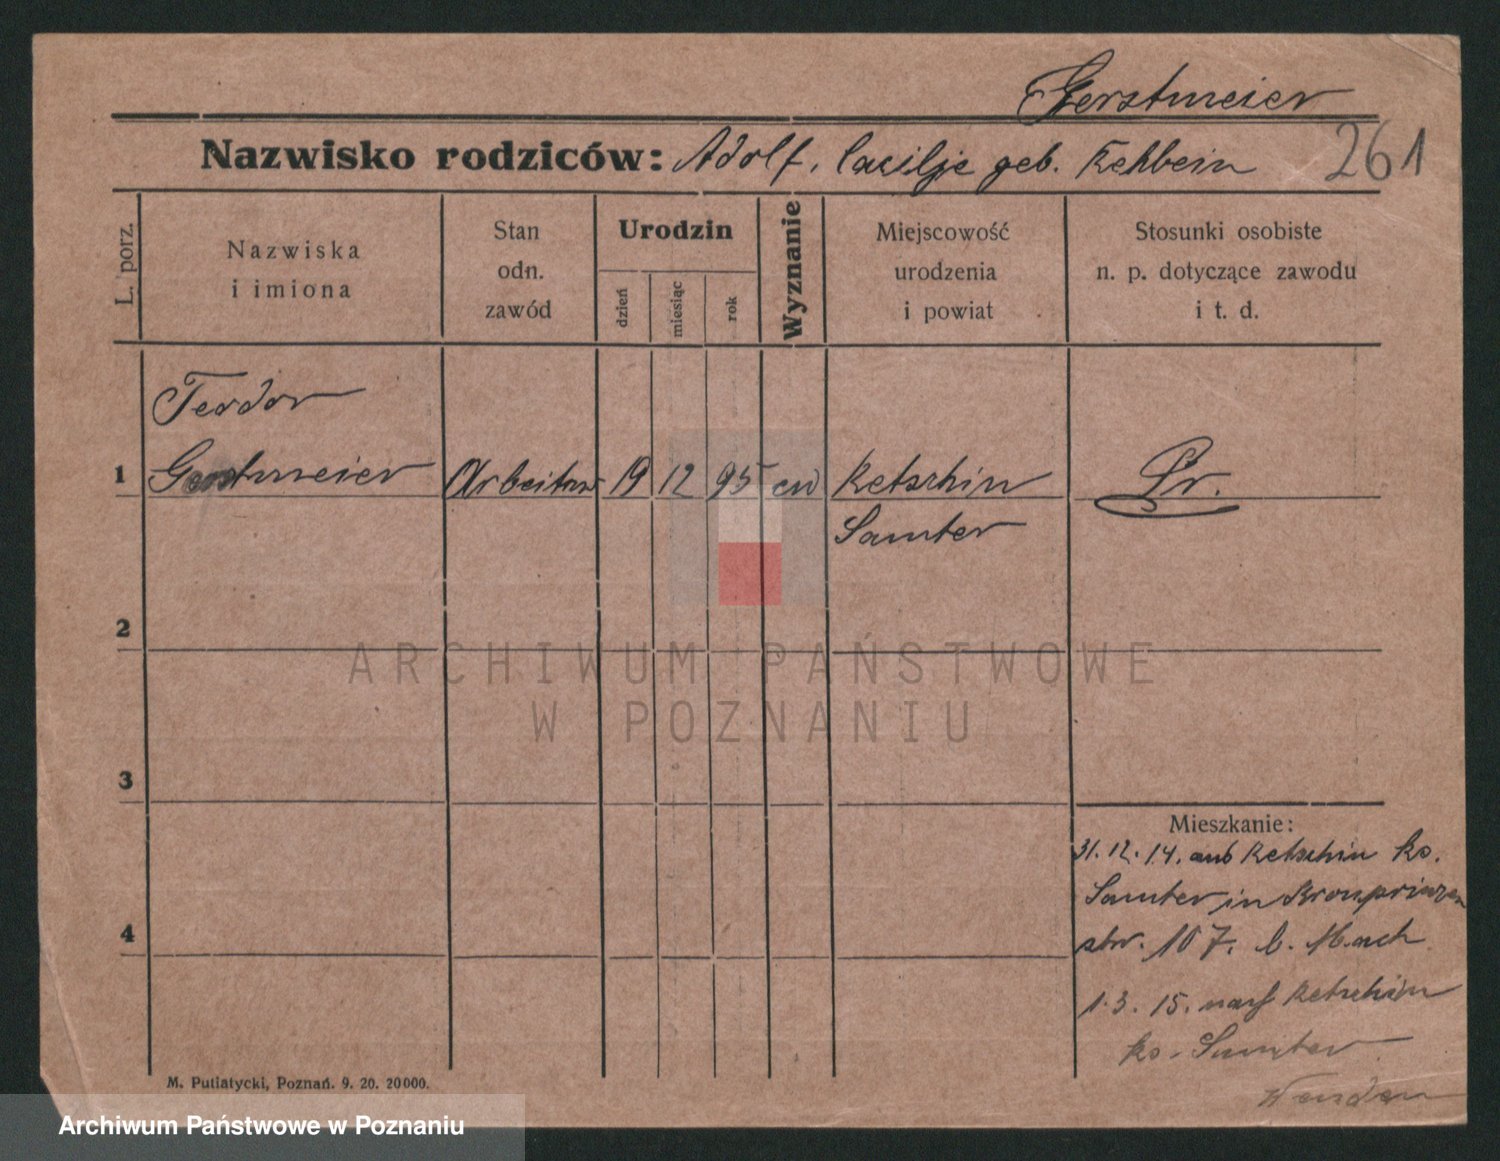 Gerstmeier
Nazwisko rodziców: Adolf, Cacilje geb. Rehbein 261
L. porz.
Nazwiska
i imiona
Stan
odn.
zawód
Urodzin
dzień
miesiąc
rok
Wyznanie
Miejscowość
urodzenia
i powiat
Stosunki osobiste
n. p. dotyczące zawodu
i t. d.
Teodor
1 Gerstmeier Arbeiter 19 12 95 ew Retschin Pr.
Samter
2
ARCHIWUM PAŃSTWOWE
W POZNANIU
3
Mieszkanie:
31. 12. 14. aus Retschin Ks.
Samter in Kronprinzen
str. 107. b. Mach
4
1. 3. 15. nach Retschin
Ks. Samter
Wenden
M. Putiatycki, Poznań. 9. 20. 20000.
Archiwum Państwowe w Poznaniu